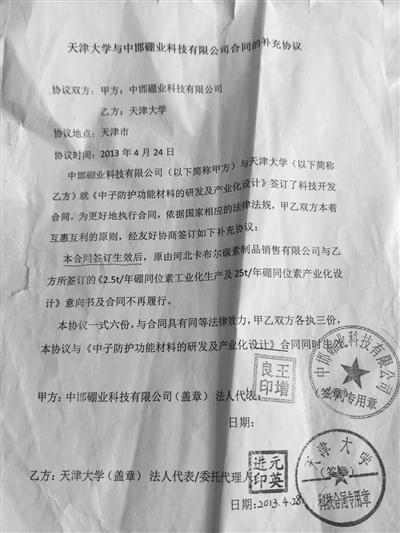 天津大学与中邯硼业科技有限公司合同的补充协议
协议双方：甲方：中邯硼业科技有限公司
乙方：天津大学
协议地点：天津市
协议时间：2013 年 4 月 24 日
中邯硼业科技有限公司（以下简称甲方）与天津大学（以下简称
乙方）就《中子防护功能材料的研发及产业化设计》签订了科技开发
合同，为更好地执行合同，依据国家相应的法律法规，甲乙双方本着
互惠互利的原则，经友好协商签订如下补充协议：
本合同签订生效后，原由河北卡布尔碳素制品销售有限公司与乙
方所签订的《2.5t/年硼同位素工业化生产及 25t/年硼同位素产业化设
计》意向书及合同不再履行。
本协议一式六份，与合同具有同等法律效力，甲乙双方各执三份，
本协议与《中子防护功能材料的研发及产业化设计》合同同时生效
甲方：中邯硼业科技有限公司（盖章） 法人代表：
王增良印
中邯硼业科技有限公司
（签章）专用章
日期：
乙方：天津大学（盖章） 法人代表/委托代理人
元英进印
天津大学
（签章）
科技合同专用章
日期：2013.4.28